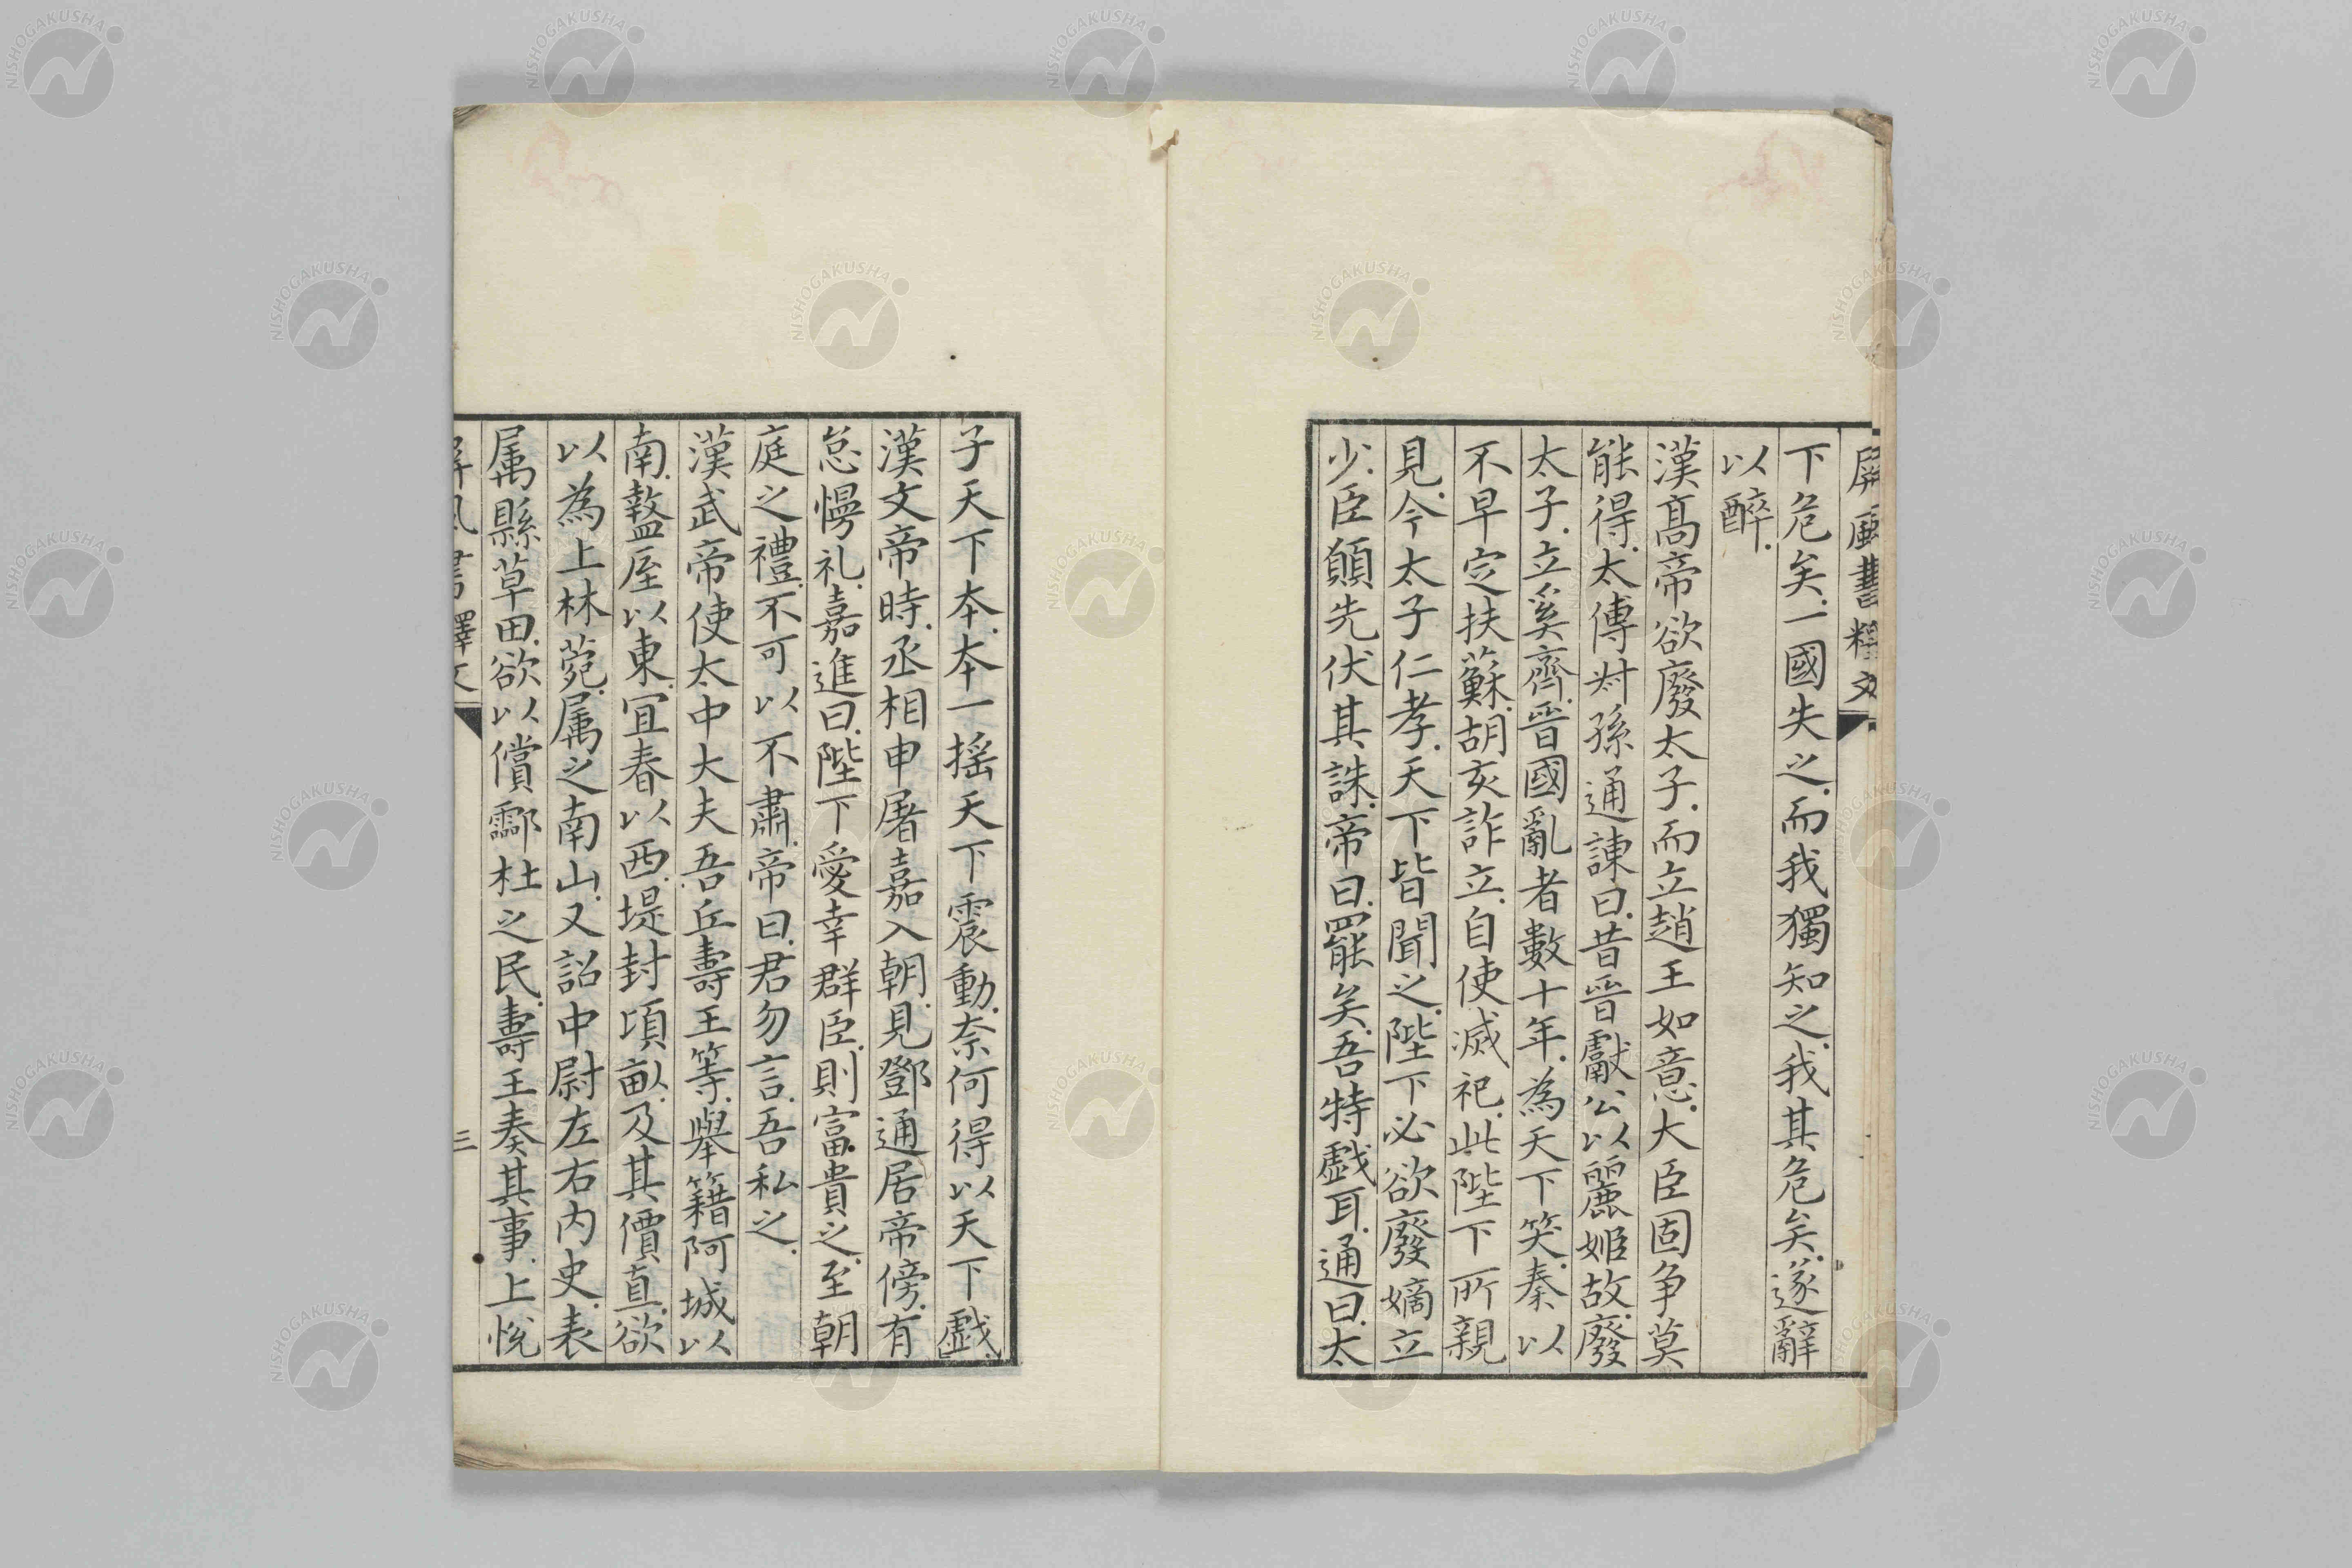 屏風書釋文
下危矣一國失之而我獨知之我其危矣遂辭
以醉
漢髙帝欲廢太子而立趙王如意大臣固争莫
能得太傅𡬝孫通諌曰昔晉獻公以麗姬故廢
太子立奚齊晉國亂者數十年為天下笑秦以
不早定扶蘇胡亥詐立自使滅祀此陛下所親
見今太子仁孝天下皆聞之陛下必欲廢嫡立
少臣願先伏其誅帝曰罷矣吾特戯耳通曰太
子天下本本一揺天下震動奈何得以天下戯
漢文帝時丞相申屠嘉入朝見鄧通居帝傍有
怠慢礼嘉進曰陛下愛幸群臣則富貴之至朝
庭之禮不可以不肅帝曰君勿言吾私之
漢武帝使太中大夫吾丘壽王等舉籍阿城以
南盩厔以東冝春以西堤封項畝及其價直欲
以為上林菀属之南山又詔中尉左右内史表
属縣草田欲以償鄠杜之民壽王奏其事上悅
屏風書釋文
三
NISHOGAKUSHA